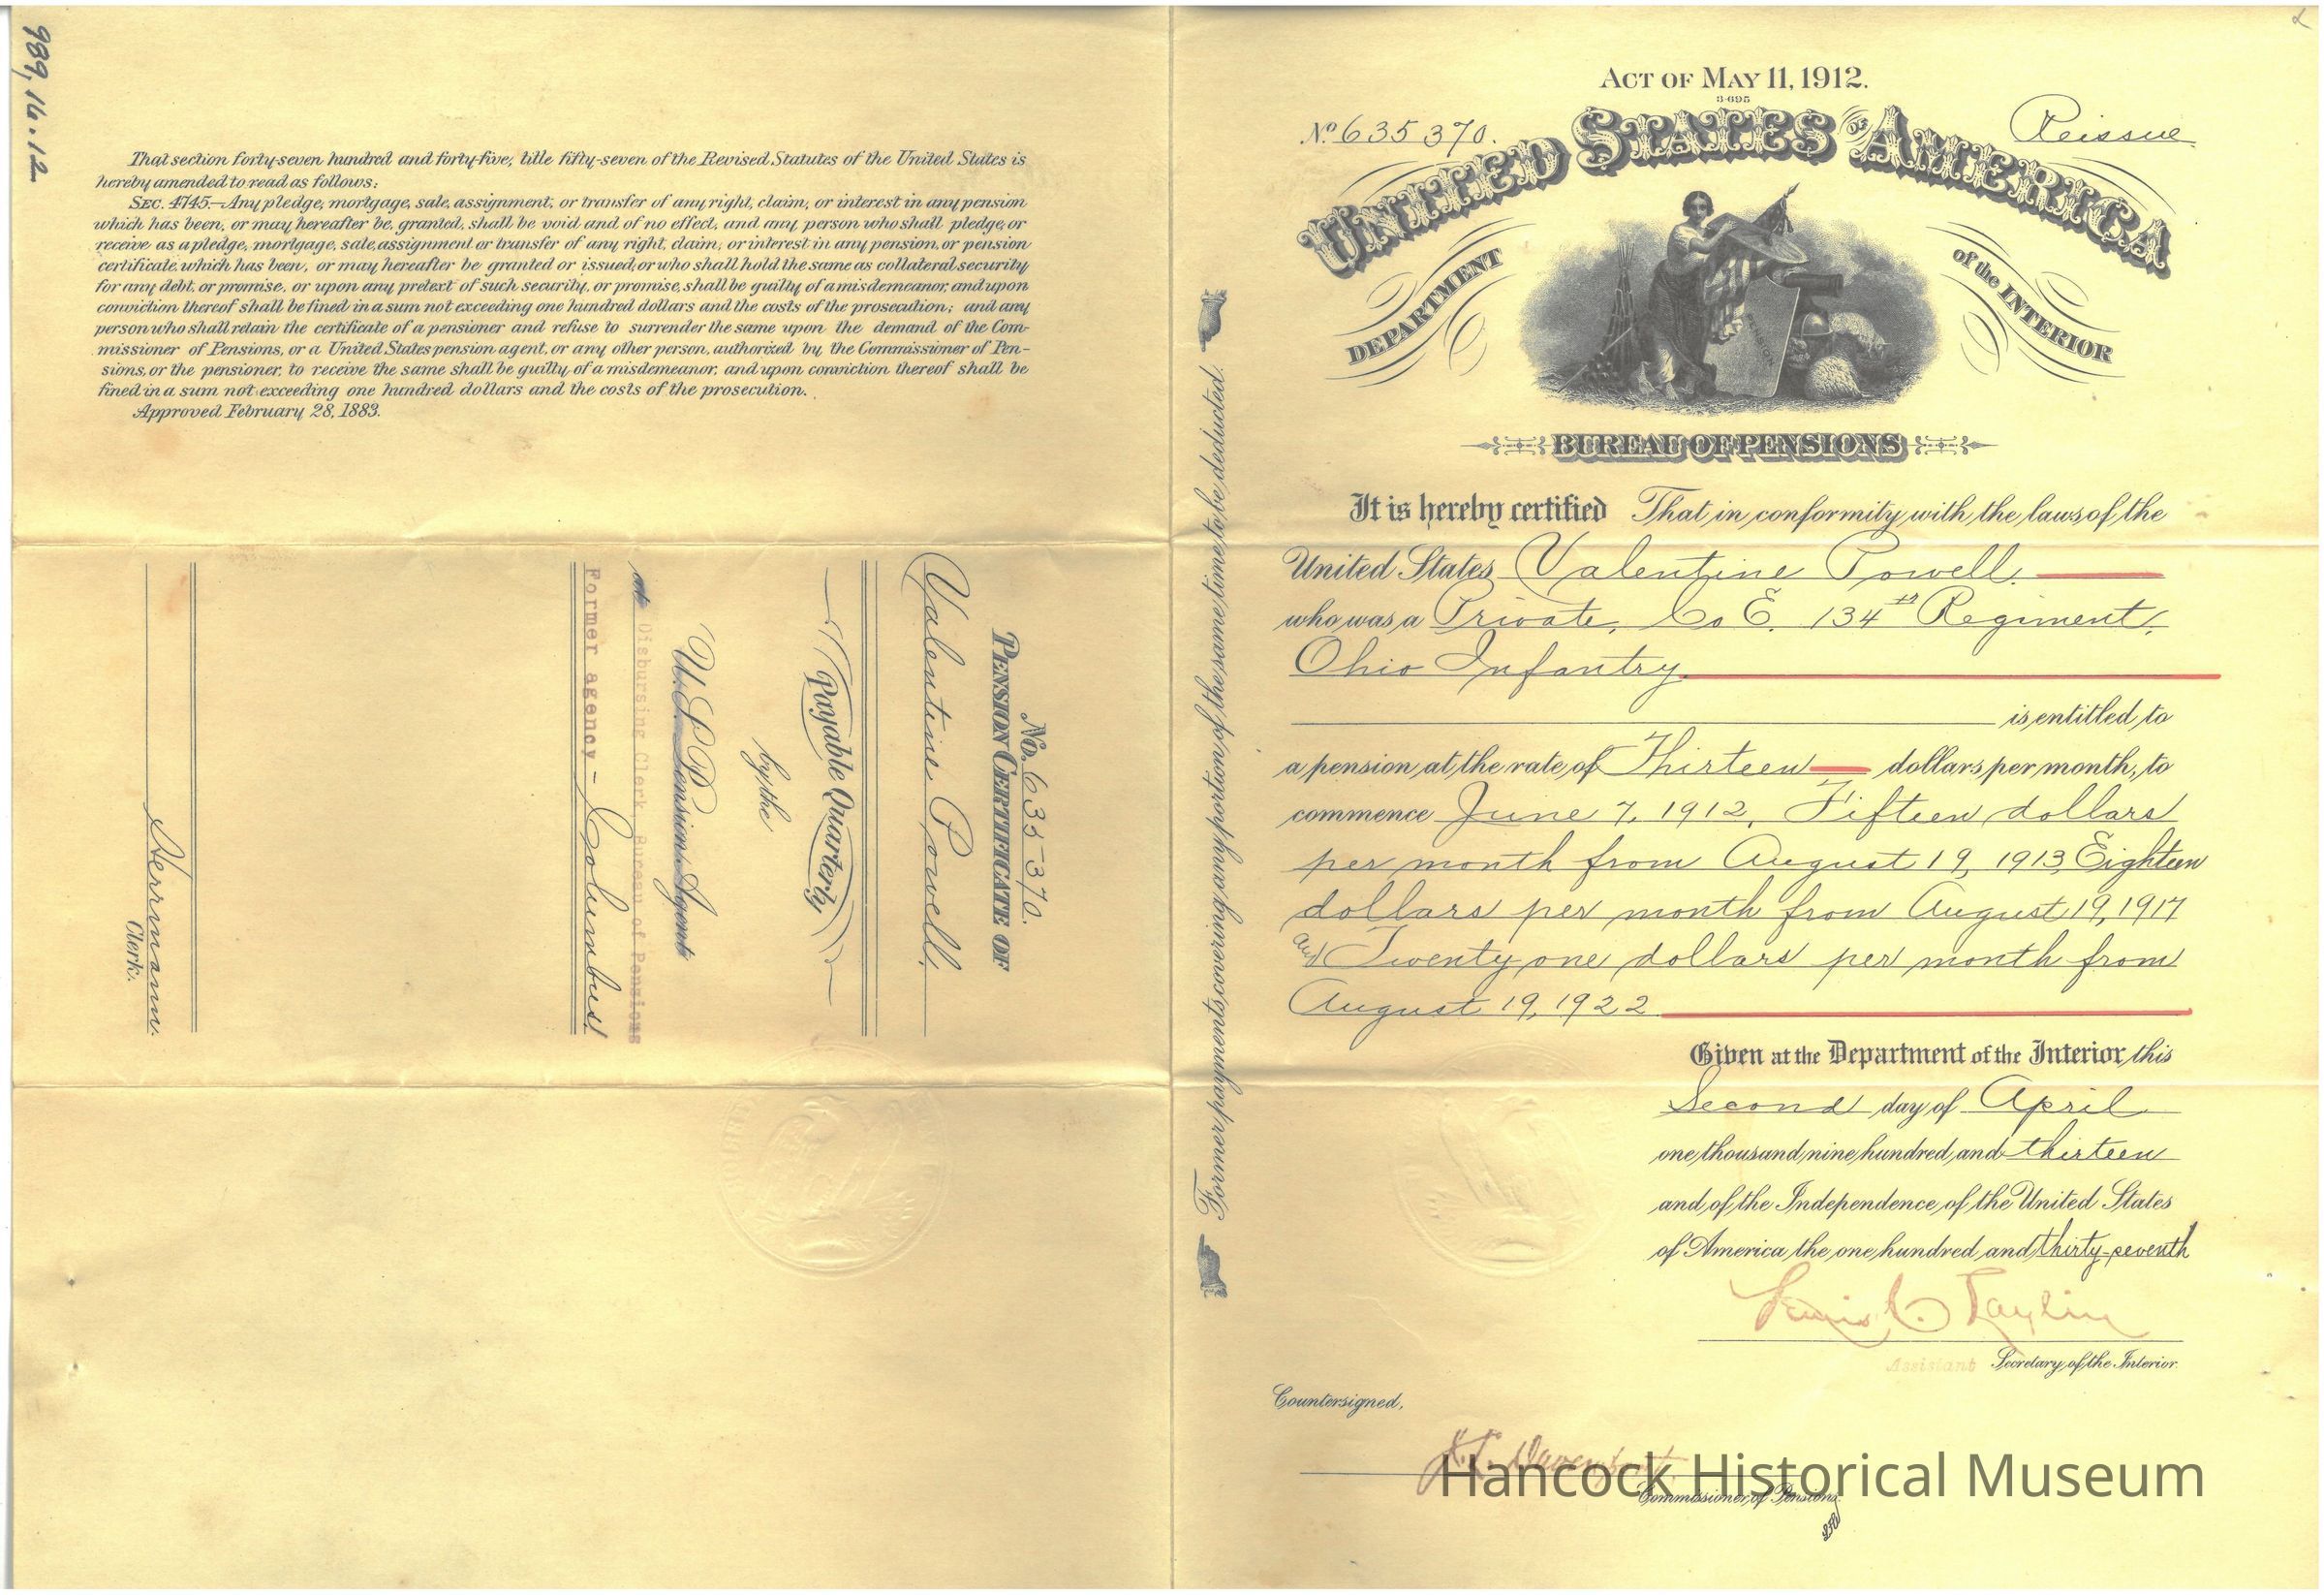 989.16.12
That section forty-seven hundred and forty-five, title fifty-seven of the Revised Statutes of the United States is
hereby amended to read as follows:
SEC. 4745.—Any pledge, mortgage, sale, assignment, or transfer of any right, claim, or interest in any pension
which has been, or may hereafter be, granted, shall be void and of no effect, and any person who shall pledge, or
receive as a pledge, mortgage, sale, assignment or transfer of any right, claim, or interest in any pension, or pension
certificate, which has been, or may hereafter be granted or issued, or who shall hold the same as collateral security
for any debt, or promise, or upon any pretext of such security, or promise, shall be guilty of a misdemeanor, and upon
conviction thereof shall be fined in a sum not exceeding one hundred dollars and the costs of the prosecution; and any
person who shall retain the certificate of a pensioner and refuse to surrender the same upon the demand of the Com-
missioner of Pensions, or a United States pension agent, or any other person, authorized by the Commissioner of Pen-
sions, or the pensioner, to receive the same shall be guilty of a misdemeanor, and upon conviction thereof shall be
fined in a sum not exceeding one hundred dollars and the costs of the prosecution.
Approved February 28, 1883.
No. 635370.
PENSION CERTIFICATE OF
Valentine Powell,
Payable Quarterly,
by the
U.S. Pension Agent
at Disbursing Clerk, Bureau of Pensions
Former agency - Columbus!
Herrmann.
Clerk.
Former payments covering any portion of the same time to be deducted.
ACT OF MAY 11, 1912.
3-695
No. 635370.
Reissue
UNITED STATES OF AMERICA
DEPARTMENT of the INTERIOR
PENSION
BUREAU OF PENSIONS
It is hereby certified That in conformity with the laws of the
United States Valentine Powell
who was a Private, Co E. 134th Regiment,
Ohio Infantry
is entitled to
a pension at the rate of Thirteen dollars per month, to
commence June 7, 1912, Fifteen dollars
per month from August 19, 1913 Eighteen
dollars per month from August 19, 1917
and Twenty one dollars per month from
August 19, 1922
Given at the Department of the Interior this
Second day of April
one thousand nine hundred and thirteen
and of the Independence of the United States
of America the one hundred and thirty-seventh
Lewis C. Laylin
Assistant Secretary of the Interior.
Countersigned,
J.L. Davenport.
Commissioner of Pensions.
Hancock Historical Museum